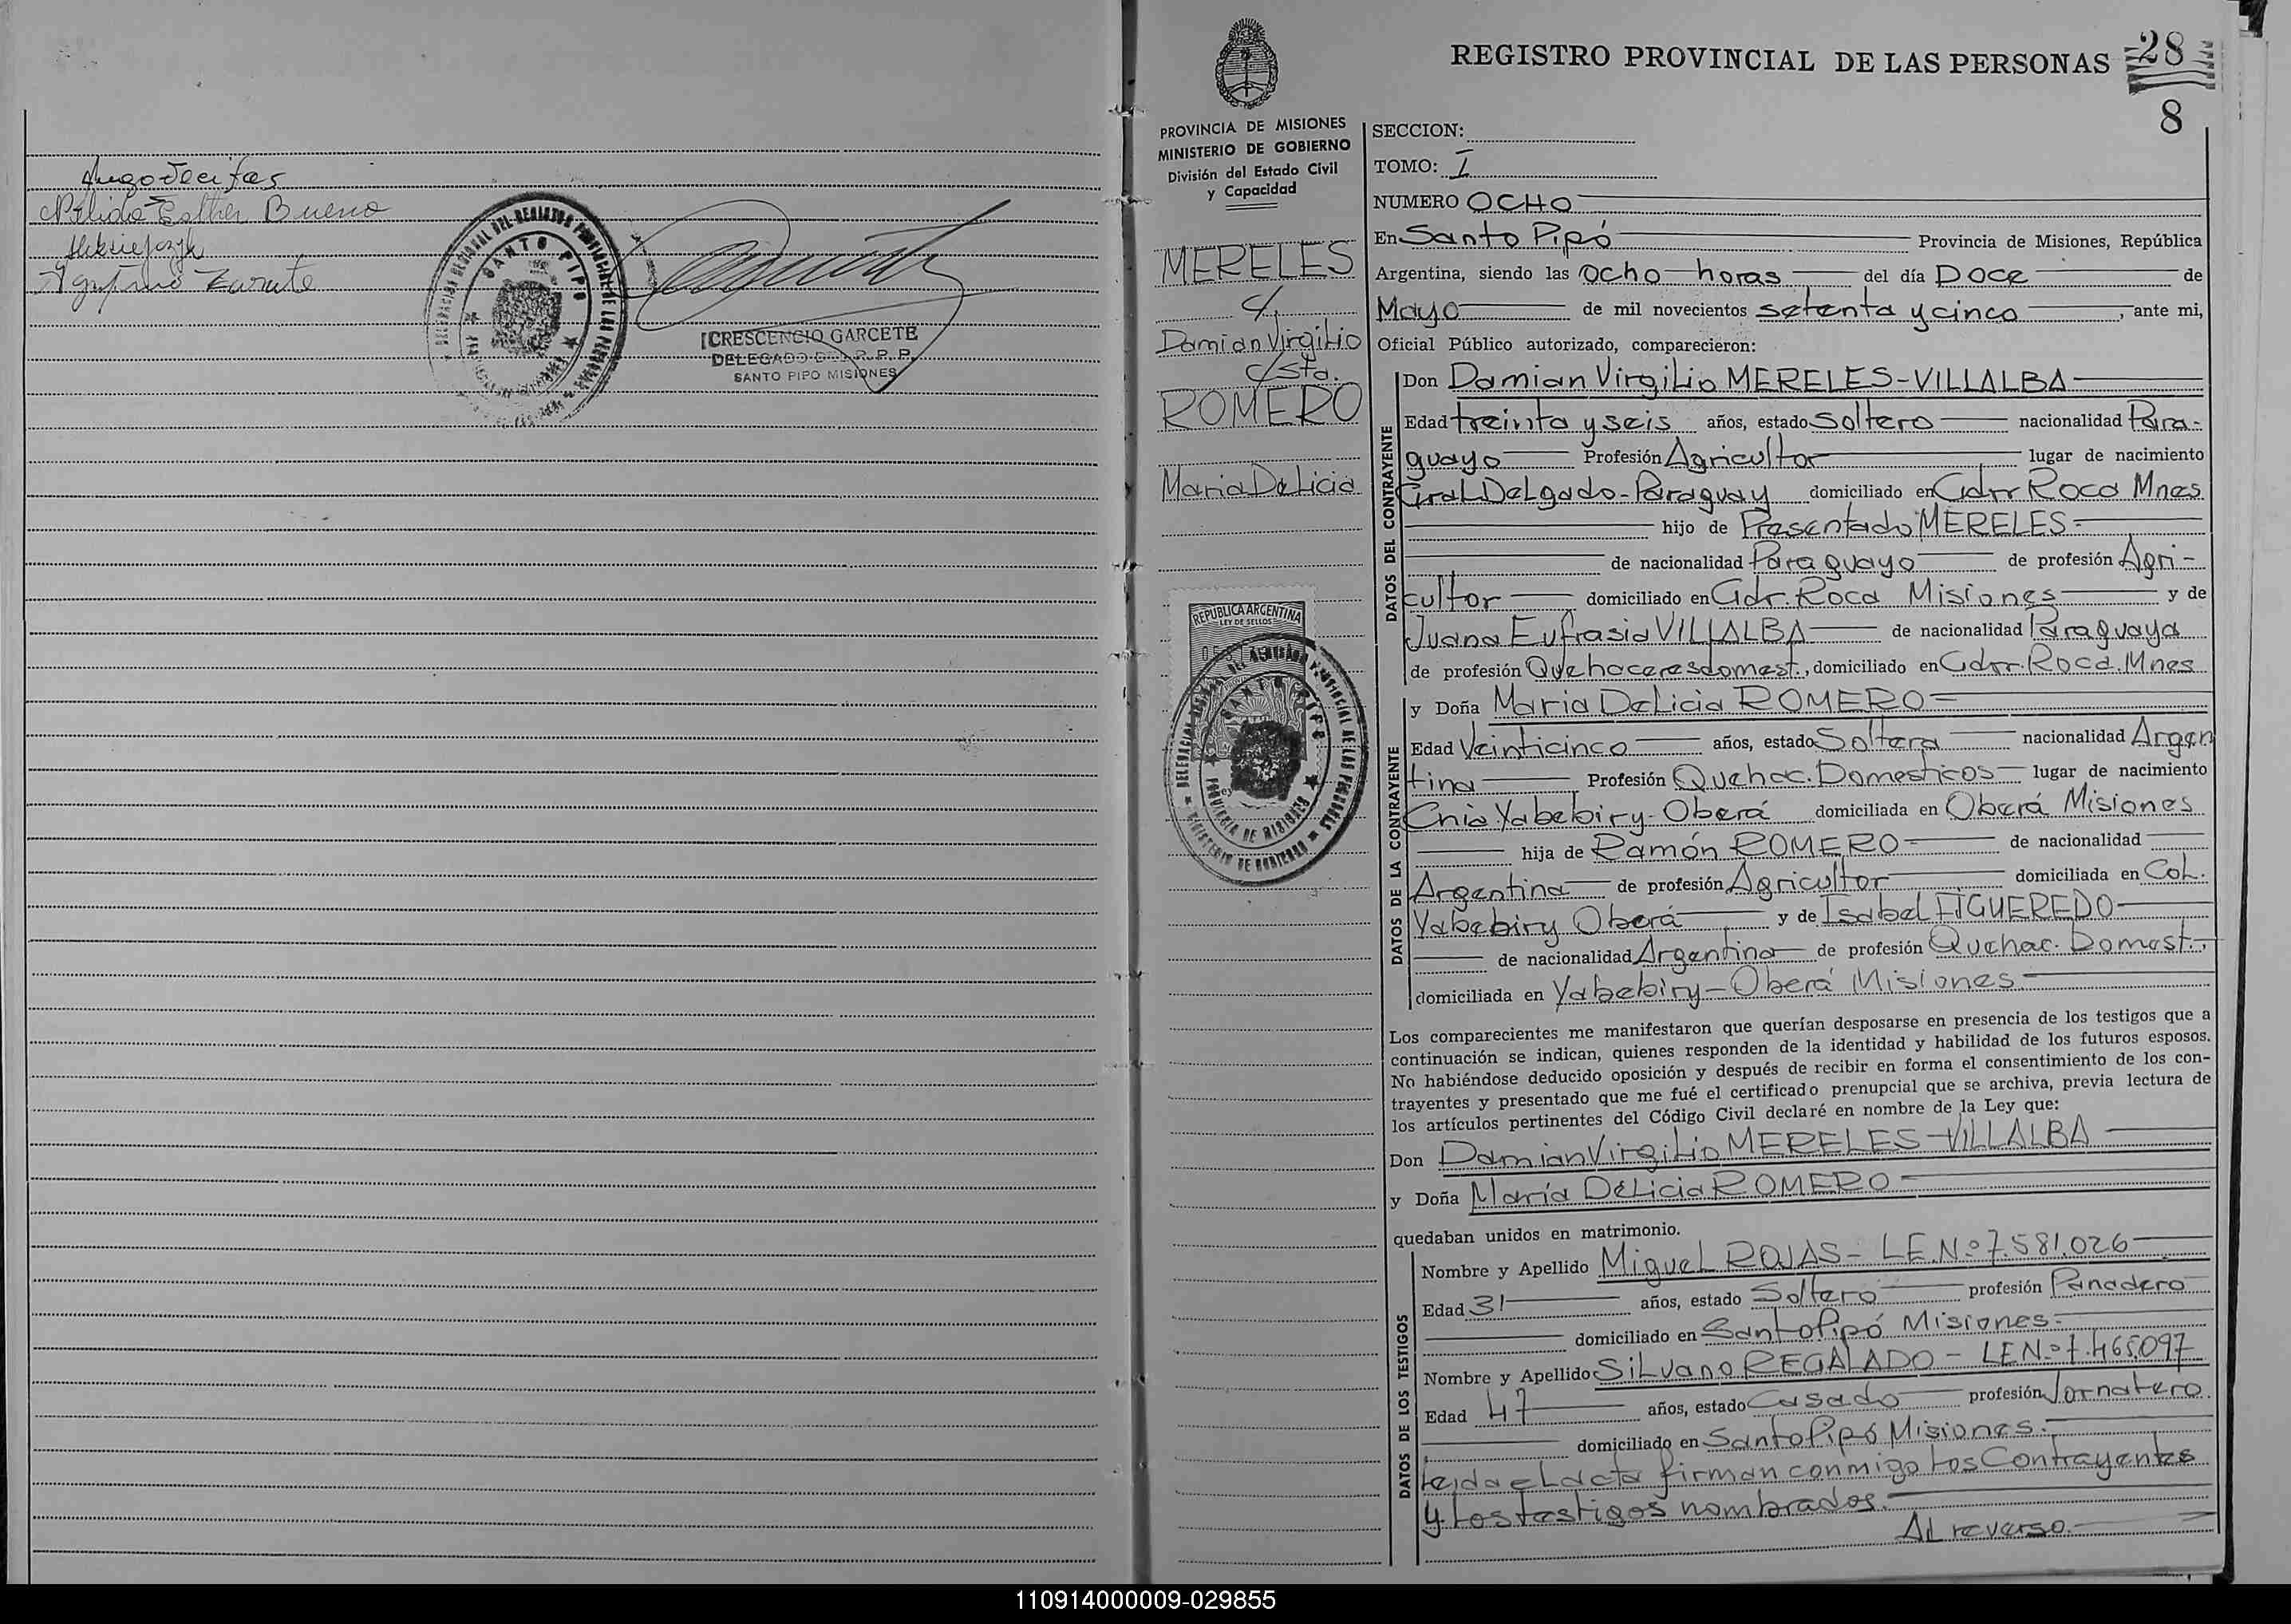 Nélida Esther Bueno
Agustino Zarate
DELEGACION REGIONAL DEL REGISTRO PROVINCIAL DE LAS PERSONAS
SANTO PIPO
CRESCENCIO GARCETE
DELEGADO DEL R. P. P.
SANTO PIPO MISIONES
REGISTRO PROVINCIAL DE LAS PERSONAS
28
8
PROVINCIA DE MISIONES
MINISTERIO DE GOBIERNO
División del Estado Civil
y Capacidad
MERELES
c/
Damian Virgilio
c/sta.
ROMERO
Maria Delicia
REPUBLICA ARGENTINA
LEY DE SELLOS
SANTO PIPO
PROVINCIA DE MISIONES
MINISTERIO DE GOBIERNO
SECCION:
TOMO: I
NUMERO OCHO
En Santo Pipó Provincia de Misiones, República
Argentina, siendo las Ocho horas del día DOCE de
Mayo de mil novecientos setenta y cinco, ante mi,
Oficial Público autorizado, comparecieron:
DATOS DEL CONTRAYENTE
Don Damian Virgilio MERELES-VILLALBA
Edad treinta y seis años, estado Soltero nacionalidad Para-
guayo Profesión Agricultor lugar de nacimiento
Gral Delgado-Paraguay domiciliado en Gdrr Roca Mnes
hijo de Presentado MERELES-
de nacionalidad Paraguayo de profesión Agri-
cultor domiciliado en Gdr. Roca Misiones y de
Juana Eufrasia VILLALBA de nacionalidad Paraguaya
de profesión Quehaceresdomest., domiciliado en Gdrr. Roca. Mnes
DATOS DE LA CONTRAYENTE
y Doña Maria Delicia ROMERO
Edad Veinticinco años, estado Soltera nacionalidad Argen
tina Profesión Quehac. Domesticos lugar de nacimiento
Cnia Yabebiry-Oberá domiciliada en Oberá Misiones
hija de Ramón ROMERO de nacionalidad
Argentina de profesión Agricultor domiciliada en Col.
Yabebiry Oberá y de Isabel FIGUEREDO
de nacionalidad Argentina de profesión Quehac. Domest.,
domiciliada en Yabebiry-Oberá Misiones
Los comparecientes me manifestaron que querían desposarse en presencia de los testigos que a
continuación se indican, quienes responden de la identidad y habilidad de los futuros esposos.
No habiéndose deducido oposición y después de recibir en forma el consentimiento de los con-
trayentes y presentado que me fué el certificado prenupcial que se archiva, previa lectura de
los artículos pertinentes del Código Civil declaré en nombre de la Ley que:
Don Damian Virgilio MERELES-VILLALBA
y Doña María Delicia ROMERO
quedaban unidos en matrimonio.
DATOS DE LOS TESTIGOS
Nombre y Apellido Miguel ROJAS- L.E.Nº 7.581.026
Edad 31 años, estado Soltero profesión Panadero
domiciliado en Santo Pipó Misiones.
Nombre y Apellido Silvano REGALADO - L.E.Nº 7.465.097
Edad 47 años, estado Casado profesión Jornalero
domiciliado en Santo Pipó Misiones.
Leida el acta firman conmigo los Contrayentes
y los testigos nombrados.
Al reverso.
110914000009-029855